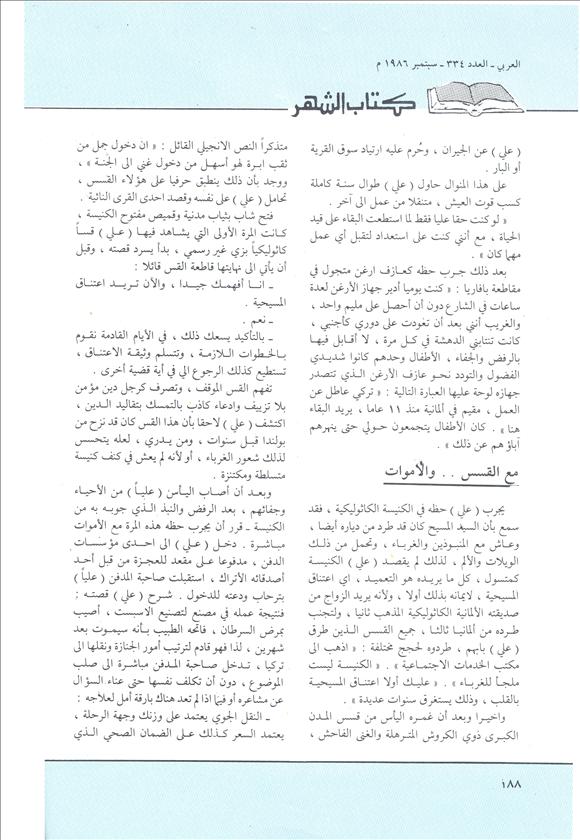 العربي - العدد ٣٣٤ - سبتمبر ١٩٨٦ م
كتاب الشهر
( علي ) عن الجيران ، وحُرم عليه ارتياد سوق القرية
أو البار .
على هذا المنوال حاول ( علي ) طوال سنة كاملة
كسب قوت العيش ، متنقلا من عمل الى آخر .
« لو كنت حقا عليا فقط لما استطعت البقاء على قيد
الحياة ، مع أنني كنت على استعداد لتقبل أي عمل
مهما كان » .
بعد ذلك جرب حظه كعازف ارغن متجول في
مقاطعة بافاريا : « كنت يوميا أدير جهاز الأرغن لعدة
ساعات في الشارع دون أن أحصل على مليم واحد ،
والغريب أنني بعد أن تعودت على دوري كأجنبي ،
كانت تنتابني الدهشة في كل مرة ، لا أقابل فيها
بالرفض والجفاء ، الأطفال وحدهم كانوا شديدي
الفضول والتودد نحو عازف الأرغن الذي تتصدر
جهازه لوحة عليها العبارة التالية : « تركي عاطل عن
العمل ، مقيم في ألمانية منذ ١١ عاما ، يريد البقاء
هنا » . كان الأطفال يتجمعون حولي حتى ينهرهم
آباؤهم عن ذلك » .
مع القسس . . والأموات
يجرب ( علي ) حظه في الكنيسة الكاثوليكية ، فقد
سمع بأن السيد المسيح كان قد طرد من دياره أيضا ،
وعاش مع المنبوذين والغرباء ، وتحمل من ذلك
الويلات والألم ، لذلك لم يقصد ( علي ) الكنيسة
كمتسول ، كل ما يريده هو التعميد ، اي اعتناق
المسيحية ، لايمانه بذلك أولا ، ولأنه يريد الزواج من
صديقته الألمانية الكاثوليكية المذهب ثانيا ، ولتجنب
طرده من ألمانيا ثالثا ، جميع القسس الذين طرق
( علي ) بابهم ، طردوه لحجج مختلفة : « اذهب الى
مكتب الخدمات الاجتماعية » . « الكنيسة ليست
ملجأ للغرباء » . « عليك أولا اعتناق المسيحية
بالقلب ، وذلك يستغرق سنوات عديدة » .
واخيرا وبعد أن غمره اليأس من قسس المدن
الكبرى ذوي الكروش المترهلة والغنى الفاحش ،
متذكراً النص الانجيلي القائل : « ان دخول جمل من
ثقب ابرة لهو أسهل من دخول غني الى الجنة » ،
ووجد بأن ذلك ينطبق حرفيا على هؤلاء القسس ،
تحامل ( علي ) على نفسه وقصد احدى القرى النائية .
فتح شاب بثياب مدنية وقميص مفتوح الكنيسة ،
كانت المرة الأولى التي يشاهد فيها ( علي ) قساً
كاثوليكياً بزي غير رسمي ، بدأ يسرد قصته ، وقبل
أن يأتي الى نهايتها قاطعة القس قائلا :
ـ انا أفهمك جيدا ، والآن تريد اعتناق
المسيحية .
ـ نعم .
ـ بالتأكيد يسعك ذلك ، في الأيام القادمة نقوم
بالخطوات اللازمة ، وتتسلم وثيقة الاعتناق ،
تستطيع كذلك الرجوع الي في أية قضية أخرى .
تفهم القس الموقف ، وتصرف كرجل دين مؤمن
بلا تزييف وادعاء كاذب بالتمسك بتقاليد الدين ،
اكتشف ( علي ) لاحقا بأن هذا القس كان قد نزح من
بولندا قبل سنوات ، ومن يدري ، لعله يتحسس
لذلك شعور الغرباء ، أو لأنه لم يعش في كنف كنيسة
متسلطة ومكتنزة .
وبعد أن أصاب اليأس ( علياً ) من الأحياء
وجفائهم ، بعد الرفض والنبذ الذي جوبه به من
الكنيسة ـ قرر أن يجرب حظه هذه المرة مع الأموات
مباشرة . دخل ( علي ) الى احدى مؤسسات
الدفن ، مدفوعا على مقعد للعجزة من قبل أحد
أصدقائه الأتراك ، استقبلت صاحبة المدفن ( علياً )
بترحاب ودعته للدخول . شرح ( علي ) قصته :
فنتيجة عمله في مصنع لتصنيع الاسبست ، أصيب
بمرض السرطان ، فاتحه الطبيب بأنه سيموت بعد
شهرين ، لذا فهو قادم لترتيب أمور الجنازة ونقلها الى
تركيا ، تدخل صاحبة المدفن مباشرة الى صلب
الموضوع ، دون أن تكلف نفسها حتى عناء السؤال
عن مشاعره أو فيما اذا لم تعد هناك بارقة أمل لعلاجه :
ـ النقل الجوي يعتمد على وزنك وجهة الرحلة ،
يعتمد السعر كذلك على الضمان الصحي الذي
١٨٨